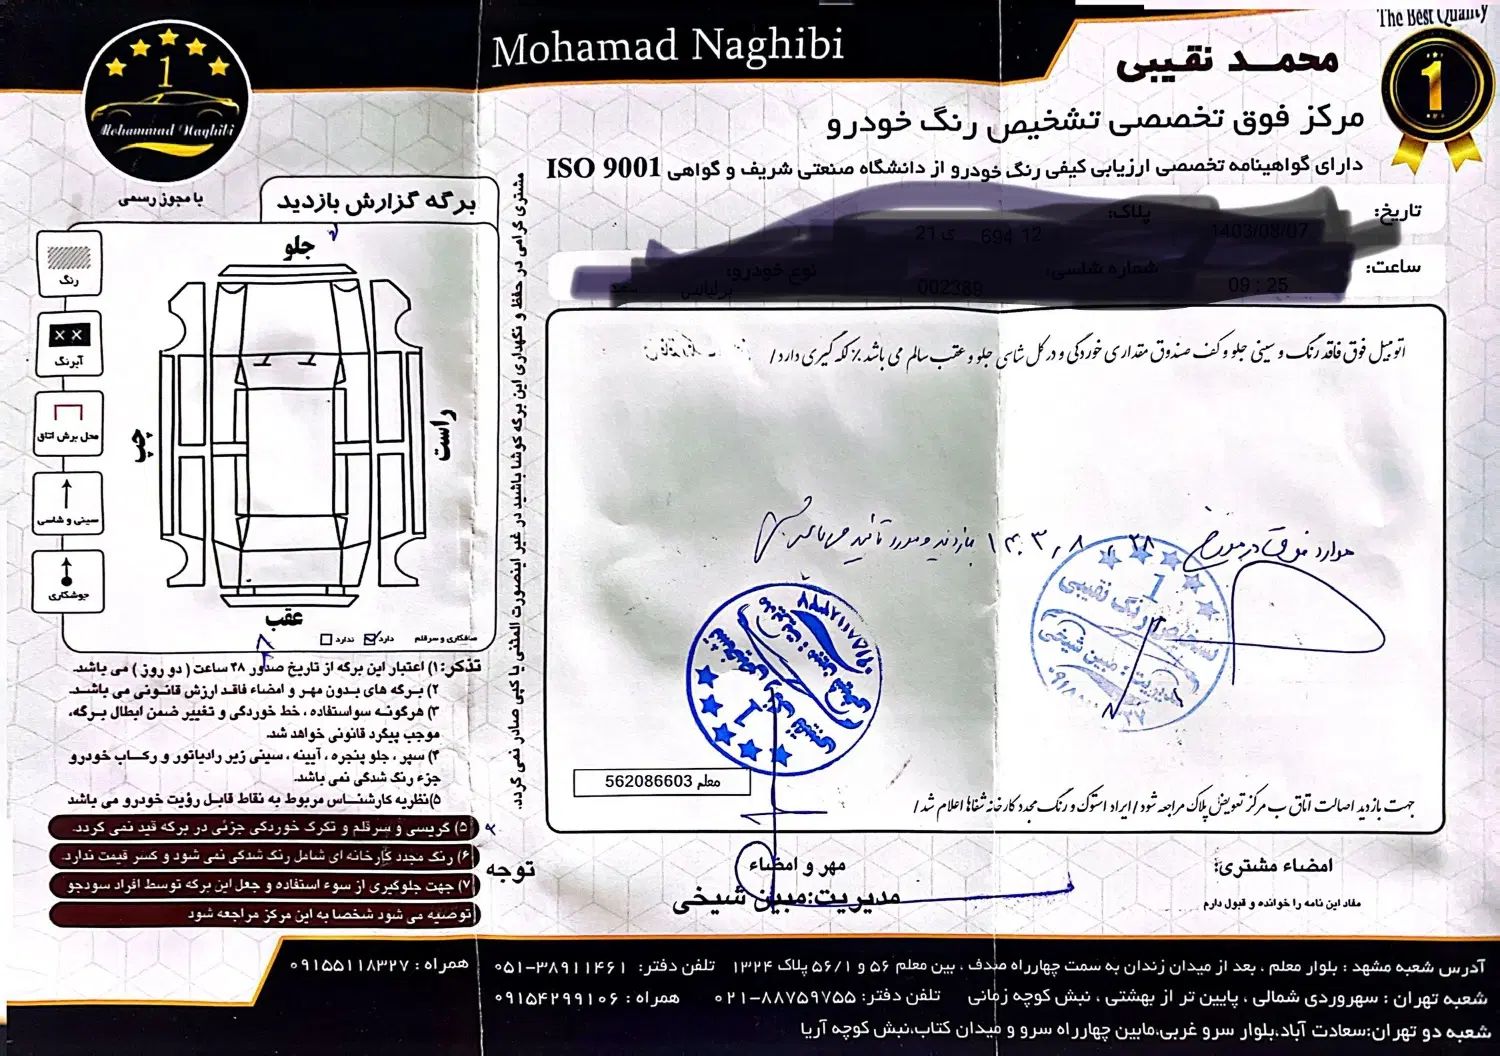 The Best Quality
1
Mohamad Naghibi
محمد نقیبی
مرکز فوق تخصصی تشخیص رنگ خودرو
دارای گواهینامه تخصصی ارزیابی کیفی رنگ خودرو از دانشگاه صنعتی شریف و گواهی ISO 9001
1
Mohammad Naghibi
با مجوز رسمی
تاریخ: 1403/08/07
پلاک: 12 694 ی 21
ساعت: 09 : 25
شماره شاسی: 002389
نوع خودرو:
برگه گزارش بازدید
جلو
راست
چپ
عقب
رنگ
× ×
آبرنگ
محل برش اتاق
سینی و شاسی
جوشکاری
صافکاری و سرقلم دارد ندارد
مشتری گرامی در حفظ و نگهداری این برگه کوشا باشید در غیر اینصورت المثنی یا کپی صادر نمی گردد.
اتومبیل فوق فاقد رنگ و سینی جلو و کف صندوق مقداری خوردگی و در کل شاسی جلو و عقب سالم می باشد ٪ لکه گیری دارد /
موارد فوق در مورخ ۱۴۰۳,۸,۲۸ بازدید و مورد تأیید می باشد
تشخیص رنگ نقیبی
1
مدیریت: مبین شیخی
معلم 562086603
جهت بازدید اصالت اتاق ب مرکز تعویض پلاک مراجعه شود / ایراد استوک و رنگ مجدد کارخانه شفاها اعلام شد /
تذکر: ۱) اعتبار این برگه از تاریخ صدور ۴۸ ساعت ( دو روز ) می باشد.
۲) برگه های بدون مهر و امضاء فاقد ارزش قانونی می باشد.
۳) هرگونه سواستفاده ، خط خوردگی و تغییر ضمن ابطال برگه،
موجب پیگرد قانونی خواهد شد.
۴) سپر ، جلو پنجره ، آیینه ، سینی زیر رادیاتور و رکاب خودرو
جزء رنگ شدگی نمی باشد.
۵)نظریه کارشناس مربوط به نقاط قابل رؤیت خودرو می باشد
۵) کریسی و سرقلم و تکرک خوردگی جزئی در برگه قید نمی گردد.
۶) رنگ مجدد کارخانه ای شامل رنگ شدگی نمی شود و کسر قیمت ندارد.
۷) جهت جلوگیری از سوء استفاده و جعل این برگه توسط افراد سودجو
توصیه می شود شخصا به این مرکز مراجعه شود
توجه
امضاء مشتری:
مفاد این نامه را خوانده و قبول دارم
مهر و امضاء
مدیریت:مبین شیخی
آدرس شعبه مشهد : بلوار معلم ، بعد از میدان زندان به سمت چهارراه صدف ، بین معلم ۵۶ و ۵۶/۱ پلاک ۱۳۲۴ تلفن دفتر: ۰۵۱-۳۸۹۱۱۴۶۱ همراه : ۰۹۱۵۵۱۱۸۳۲۷
شعبه تهران : سهروردی شمالی ، پایین تر از بهشتی ، نبش کوچه زمانی تلفن دفتر: ۰۲۱-۸۸۷۵۹۷۵۵ همراه : ۰۹۱۵۴۲۹۹۱۰۶
شعبه دو تهران:سعادت آباد،بلوار سرو غربی،مابین چهارراه سرو و میدان کتاب،نبش کوچه آریا